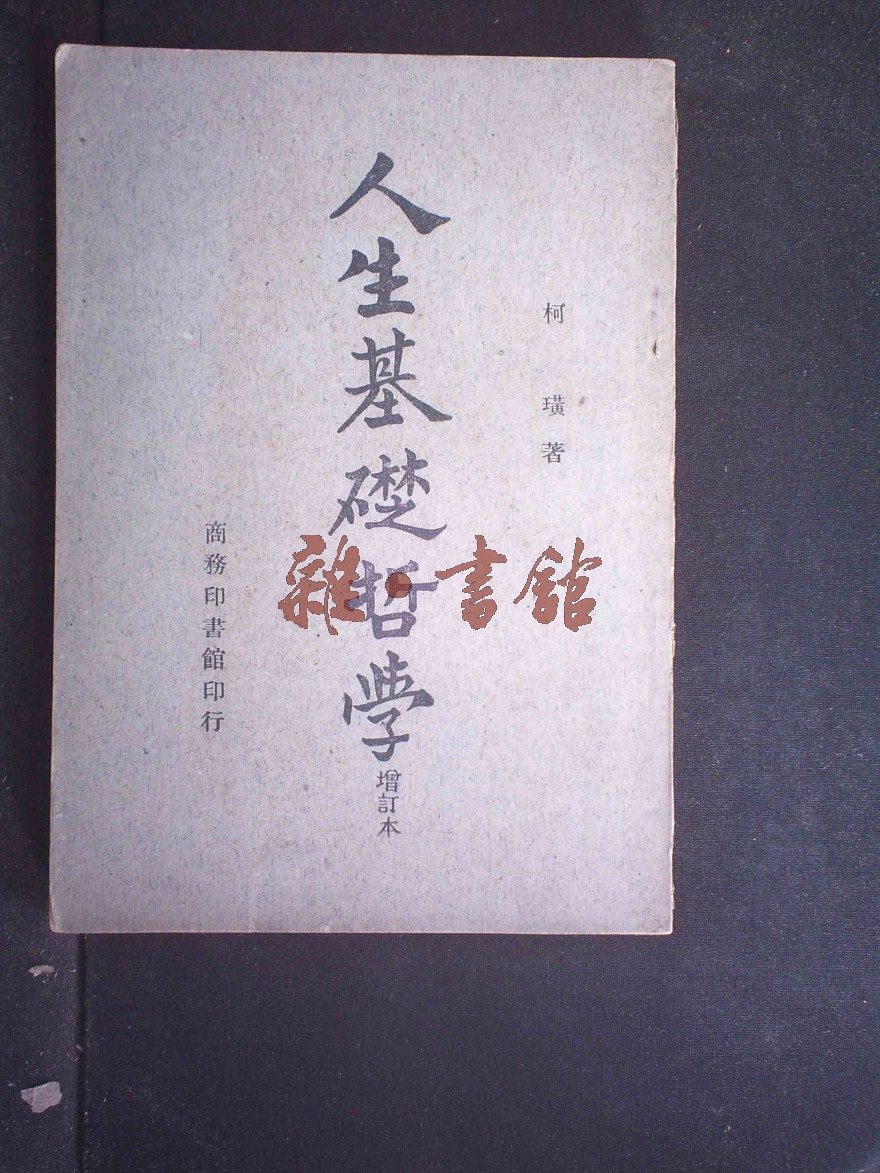 柯璜著
人生基礎哲學
增訂本
商務印書館印行
雜·書館